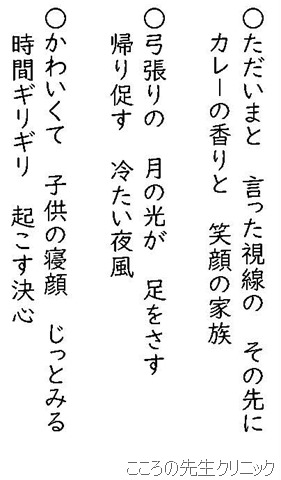 〇ただいまと　言った視線の　その先に
カレーの香りと　笑顔の家族
〇弓張りの　月の光が　足をさす
帰り促す　冷たい夜風
〇かわいくて　子供の寝顔　じっとみる
時間ギリギリ　起こす決心
こころの先生クリニック